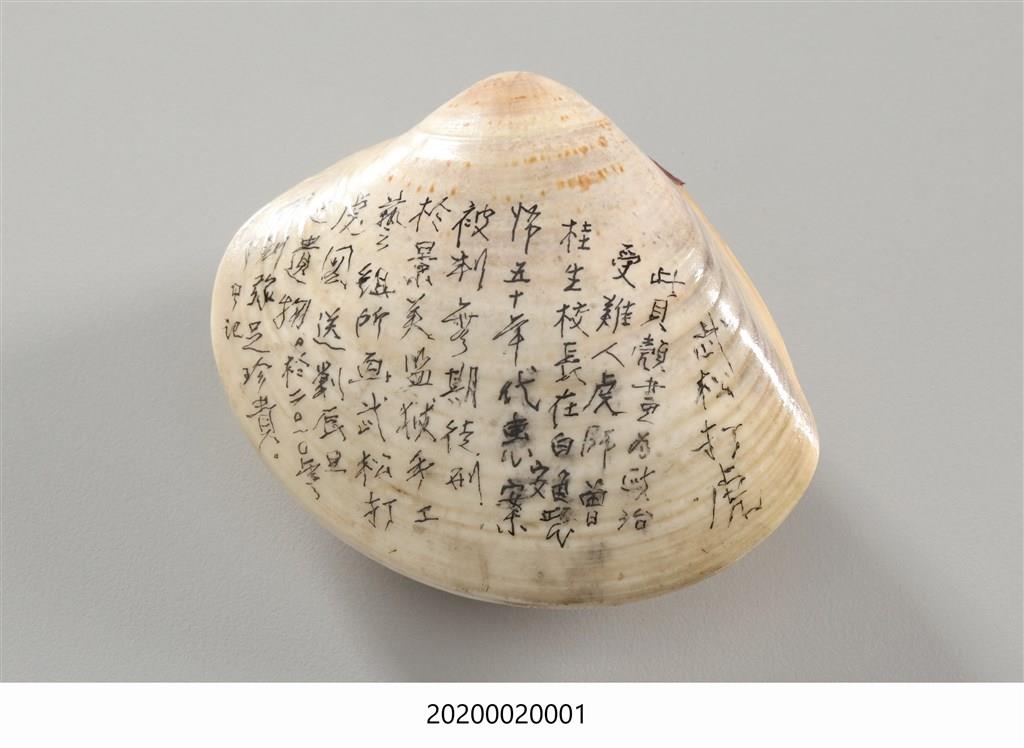 武松打虎
此貝殼畫為政治
受難人虎師曾
桂生校長在白色恐
怖五十年代惠安案
被判無期徒刑
於景美監獄手工
藝組所画武松打
虎圖送劉辰旦
遺物。於二〇二〇零
彌足珍貴。
記
20200020001